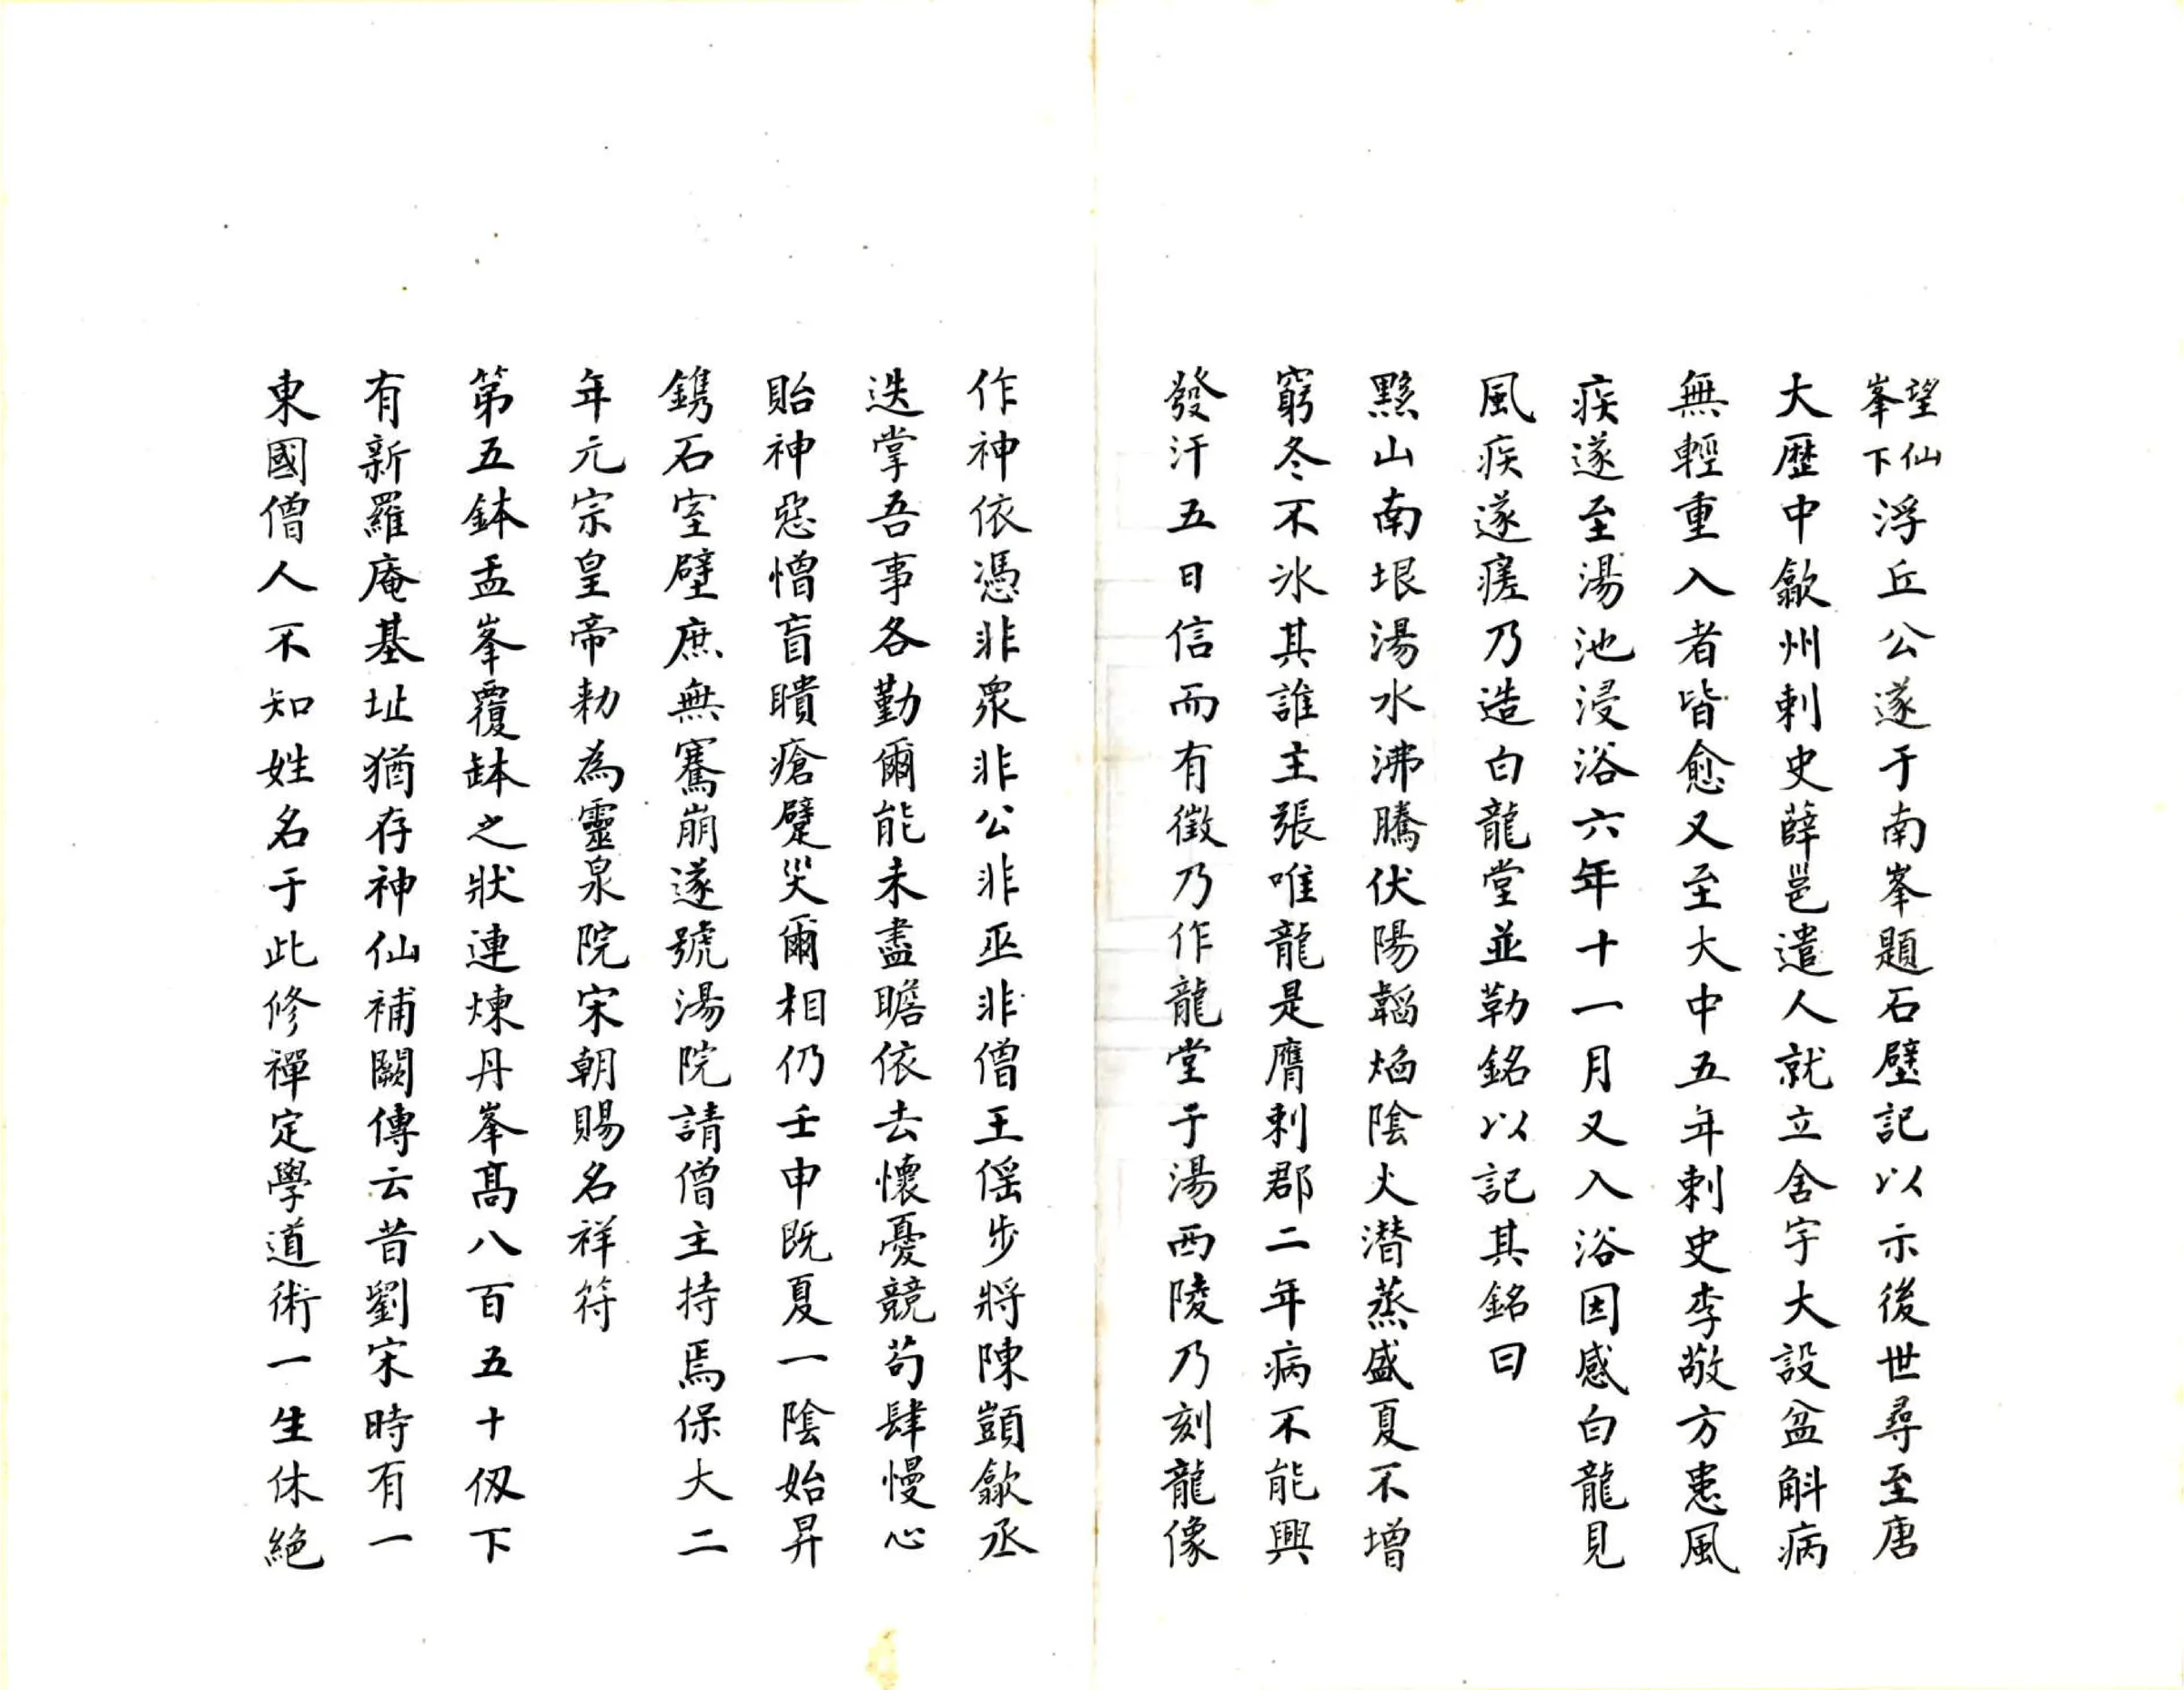 望仙峯下浮丘公遂于南峯題石壁記以示後世尋至唐
大歷中歙州刺史薛邕遣人就立舍宇大設盆斛病
無輕重入者皆愈又至大中五年刺史李敬方患風
疾遂至湯池浸浴六年十一月又入浴因感白龍見
風疾遂瘥乃造白龍堂並勒銘以記其銘曰
黟山南垠湯水沸騰伏陽韜焰陰火潛蒸盛夏不增
窮冬不氷其誰主張唯龍是膺刺郡二年病不能興
發汗五日信而有徵乃作龍堂于湯西陵乃刻龍像
作神依憑非衆非公非巫非僧王傜步將陳顗歙丞
迭掌吾事各勤爾能未盡瞻依去懷憂競苟肆慢心
貽神惡憎盲瞶瘡躄災爾相仍壬申既夏一陰始昇
鐫石室壁庶無騫崩遂號湯院請僧主持焉保大二
年元宗皇帝勅為靈泉院宋朝賜名祥符
第五鉢盂峯覆缽之狀連煉丹峯髙八百五十仭下
有新羅庵基址猶存神仙補闕傳云昔劉宋時有一
東國僧人不知姓名于此修禪定學道術一生休絶